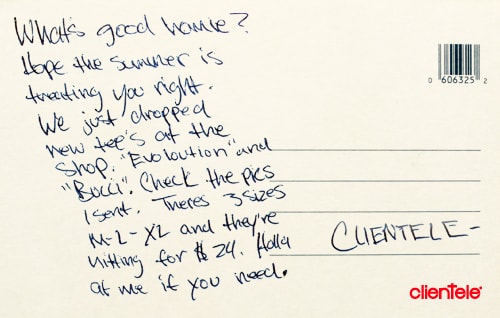 What's good homie?
Hope the summer is
treating you right.
We just dropped
new tee's at the
shop. "Evoloution" and
"Bocci". Check the pics
I sent. Theres 3 sizes
M-L-XL and they're
hitting for $24. Holla
at me if you need.
0 606325 2
CLIENTELE-
clienTele®